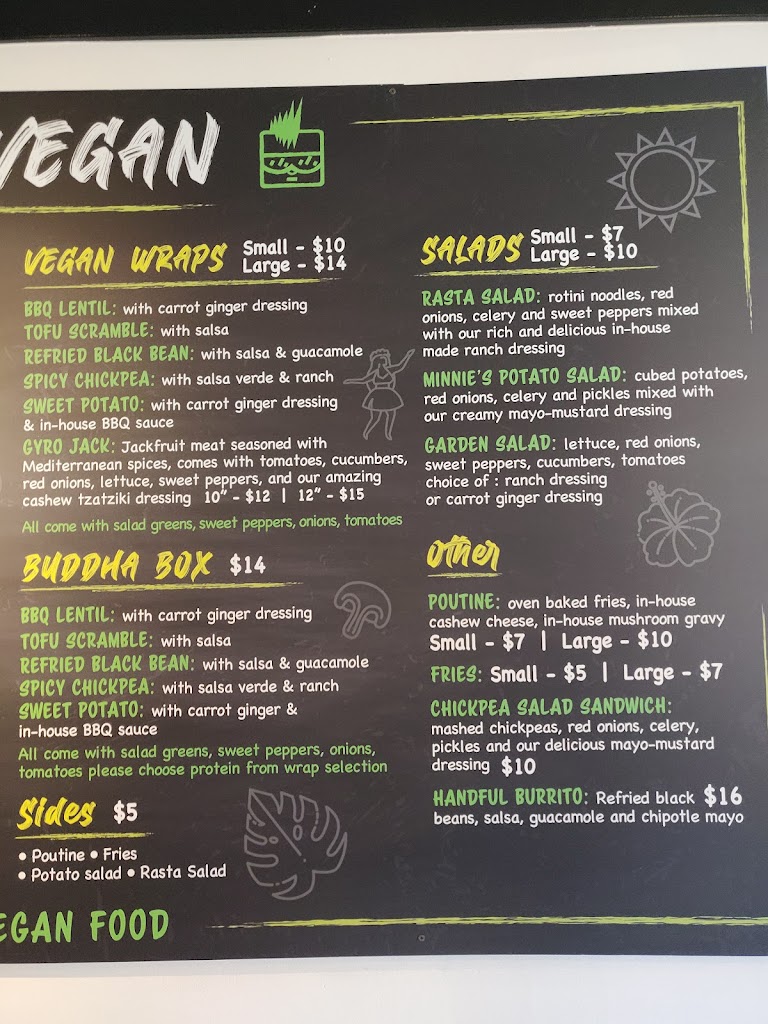 VEGAN
VEGAN WRAPS Small - $10
Large - $14
BBQ LENTIL: with carrot ginger dressing
TOFU SCRAMBLE: with salsa
REFRIED BLACK BEAN: with salsa & guacamole
SPICY CHICKPEA: with salsa verde & ranch
SWEET POTATO: with carrot ginger dressing
& in-house BBQ sauce
GYRO JACK: Jackfruit meat seasoned with
Mediterranean spices, comes with tomatoes, cucumbers,
red onions, lettuce, sweet peppers, and our amazing
cashew tzatziki dressing 10" - $12 | 12" - $15
All come with salad greens, sweet peppers, onions, tomatoes
BUDDHA BOX $14
BBQ LENTIL: with carrot ginger dressing
TOFU SCRAMBLE: with salsa
REFRIED BLACK BEAN: with salsa & guacamole
SPICY CHICKPEA: with salsa verde & ranch
SWEET POTATO: with carrot ginger &
in-house BBQ sauce
All come with salad greens, sweet peppers, onions,
tomatoes please choose protein from wrap selection
Sides $5
• Poutine • Fries
• Potato salad • Rasta Salad
SALADS Small - $7
Large - $10
RASTA SALAD: rotini noodles, red
onions, celery and sweet peppers mixed
with our rich and delicious in-house
made ranch dressing
MINNIE'S POTATO SALAD: cubed potatoes,
red onions, celery and pickles mixed with
our creamy mayo-mustard dressing
GARDEN SALAD: lettuce, red onions,
sweet peppers, cucumbers, tomatoes
choice of : ranch dressing
or carrot ginger dressing
Other
POUTINE: oven baked fries, in-house
cashew cheese, in-house mushroom gravy
Small - $7 | Large - $10
FRIES: Small - $5 | Large - $7
CHICKPEA SALAD SANDWICH:
mashed chickpeas, red onions, celery,
pickles and our delicious mayo-mustard
dressing $10
HANDFUL BURRITO: Refried black $16
beans, salsa, guacamole and chipotle mayo
EGAN FOOD